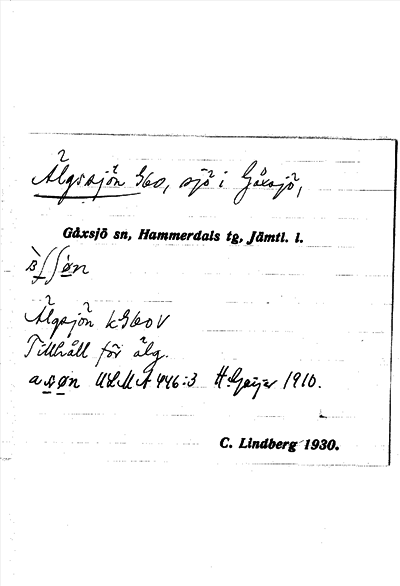 Älgssjön G60, sjö i Gåxsjö,
Gåxsjö sn, Hammerdals tg, Jämtl. l.
Älgsjön k G60 V
Tillhåll för älg.
ULMA 446:3 H. Geijer 1910.
C. Lindberg 1930.